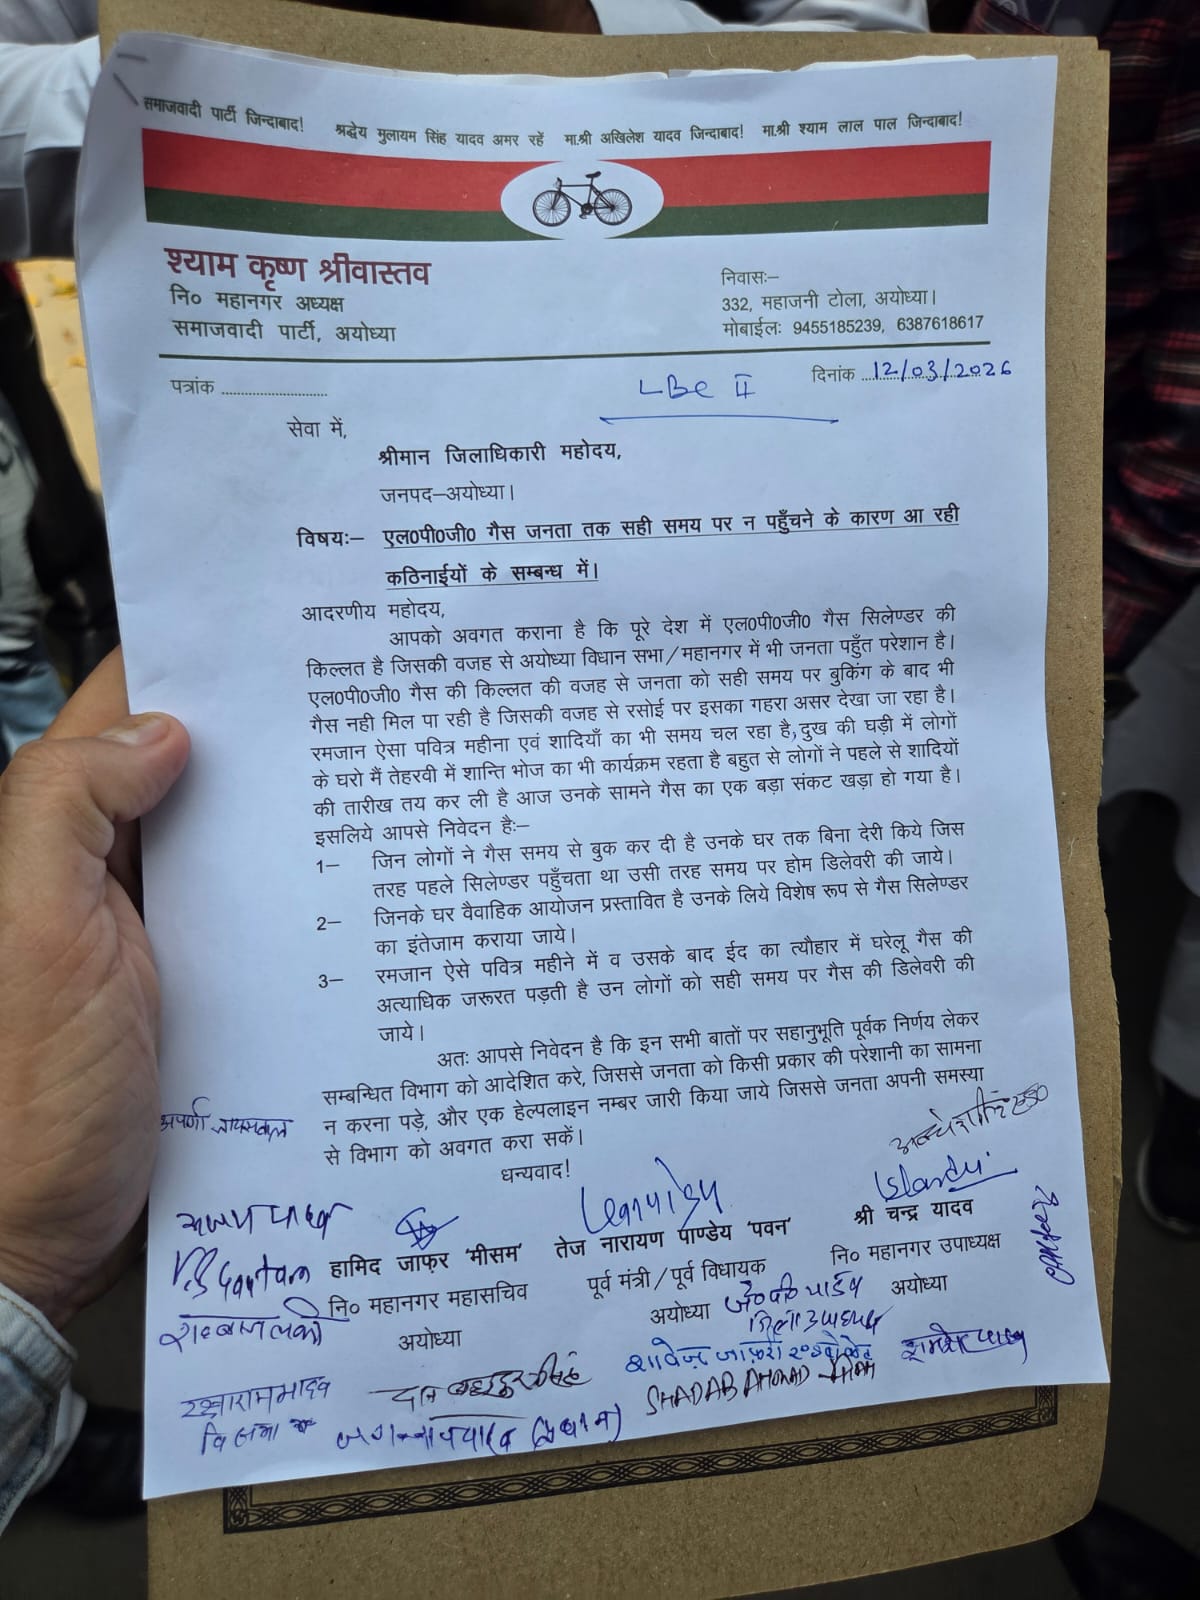 समाजवादी पार्टी जिन्दाबाद! श्रद्धेय मुलायम सिंह यादव अमर रहें मा.श्री अखिलेश यादव जिन्दाबाद! मा.श्री श्याम लाल पाल जिन्दाबाद!
श्याम कृष्ण श्रीवास्तव
नि० महानगर अध्यक्ष
समाजवादी पार्टी, अयोध्या
निवासः–
332, महाजनी टोला, अयोध्या।
मोबाईलः 9455185239, 6387618617
पत्रांक ............................
दिनांक 12/03/2026
LBC II
सेवा में,
श्रीमान जिलाधिकारी महोदय,
जनपद–अयोध्या।
विषयः– एल0पी0जी0 गैस जनता तक सही समय पर न पहुँचने के कारण आ रही
कठिनाईयों के सम्बन्ध में।
आदरणीय महोदय,
आपको अवगत कराना है कि पूरे देश में एल0पी0जी0 गैस सिलेण्डर की
किल्लत है जिसकी वजह से अयोध्या विधान सभा/महानगर में भी जनता पहुँत परेशान है।
एल0पी0जी0 गैस की किल्लत की वजह से जनता को सही समय पर बुकिंग के बाद भी
गैस नही मिल पा रही है जिसकी वजह से रसोई पर इसका गहरा असर देखा जा रहा है।
रमजान ऐसा पवित्र महीना एवं शादियाँ का भी समय चल रहा है, दुख की घड़ी में लोगों
के घरो मैं तेहरवी में शान्ति भोज का भी कार्यक्रम रहता है बहुत से लोगों ने पहले से शादियों
की तारीख तय कर ली है आज उनके सामने गैस का एक बड़ा संकट खड़ा हो गया है।
इसलिये आपसे निवेदन हैः–
1– जिन लोगों ने गैस समय से बुक कर दी है उनके घर तक बिना देरी किये जिस
तरह पहले सिलेण्डर पहुँचता था उसी तरह समय पर होम डिलेवरी की जाये।
2– जिनके घर वैवाहिक आयोजन प्रस्तावित है उनके लिये विशेष रूप से गैस सिलेण्डर
का इंतेजाम कराया जाये।
3– रमजान ऐसे पवित्र महीने में व उसके बाद ईद का त्यौहार में घरेलू गैस की
अत्याधिक जरूरत पड़ती है उन लोगों को सही समय पर गैस की डिलेवरी की
जाये।
अतः आपसे निवेदन है कि इन सभी बातों पर सहानुभूति पूर्वक निर्णय लेकर
सम्बन्धित विभाग को आदेशित करे, जिससे जनता को किसी प्रकार की परेशानी का सामना
न करना पड़े, और एक हेल्पलाइन नम्बर जारी किया जाये जिससे जनता अपनी समस्या
से विभाग को अवगत करा सकें।
धन्यवाद!
अपर्णा जायसवाल
हामिद जाफ़र 'मीसम'
नि० महानगर महासचिव
अयोध्या
तेज नारायण पाण्डेय 'पवन'
पूर्व मंत्री/पूर्व विधायक
अयोध्या
श्री चन्द्र यादव
नि० महानगर उपाध्यक्ष
अयोध्या
जिला उपाध्यक्ष
SHADAB AHMAD